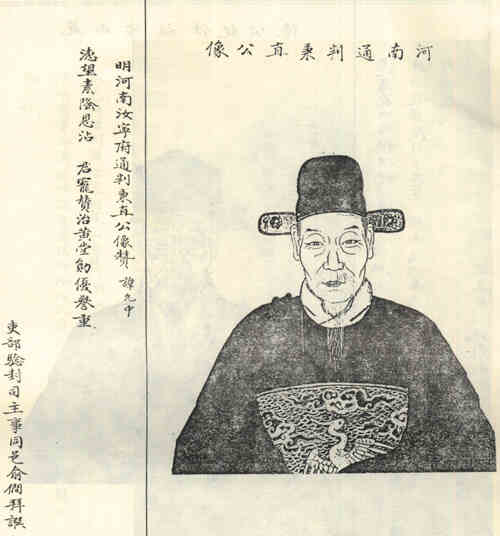 河南通判秉直公像
明河南汝寧府通判秉直公像贊 諱九中
望素隆恩沾 君寵贊治黄堂勛優譽重
吏部驗封司主事同邑俞僩拜譔